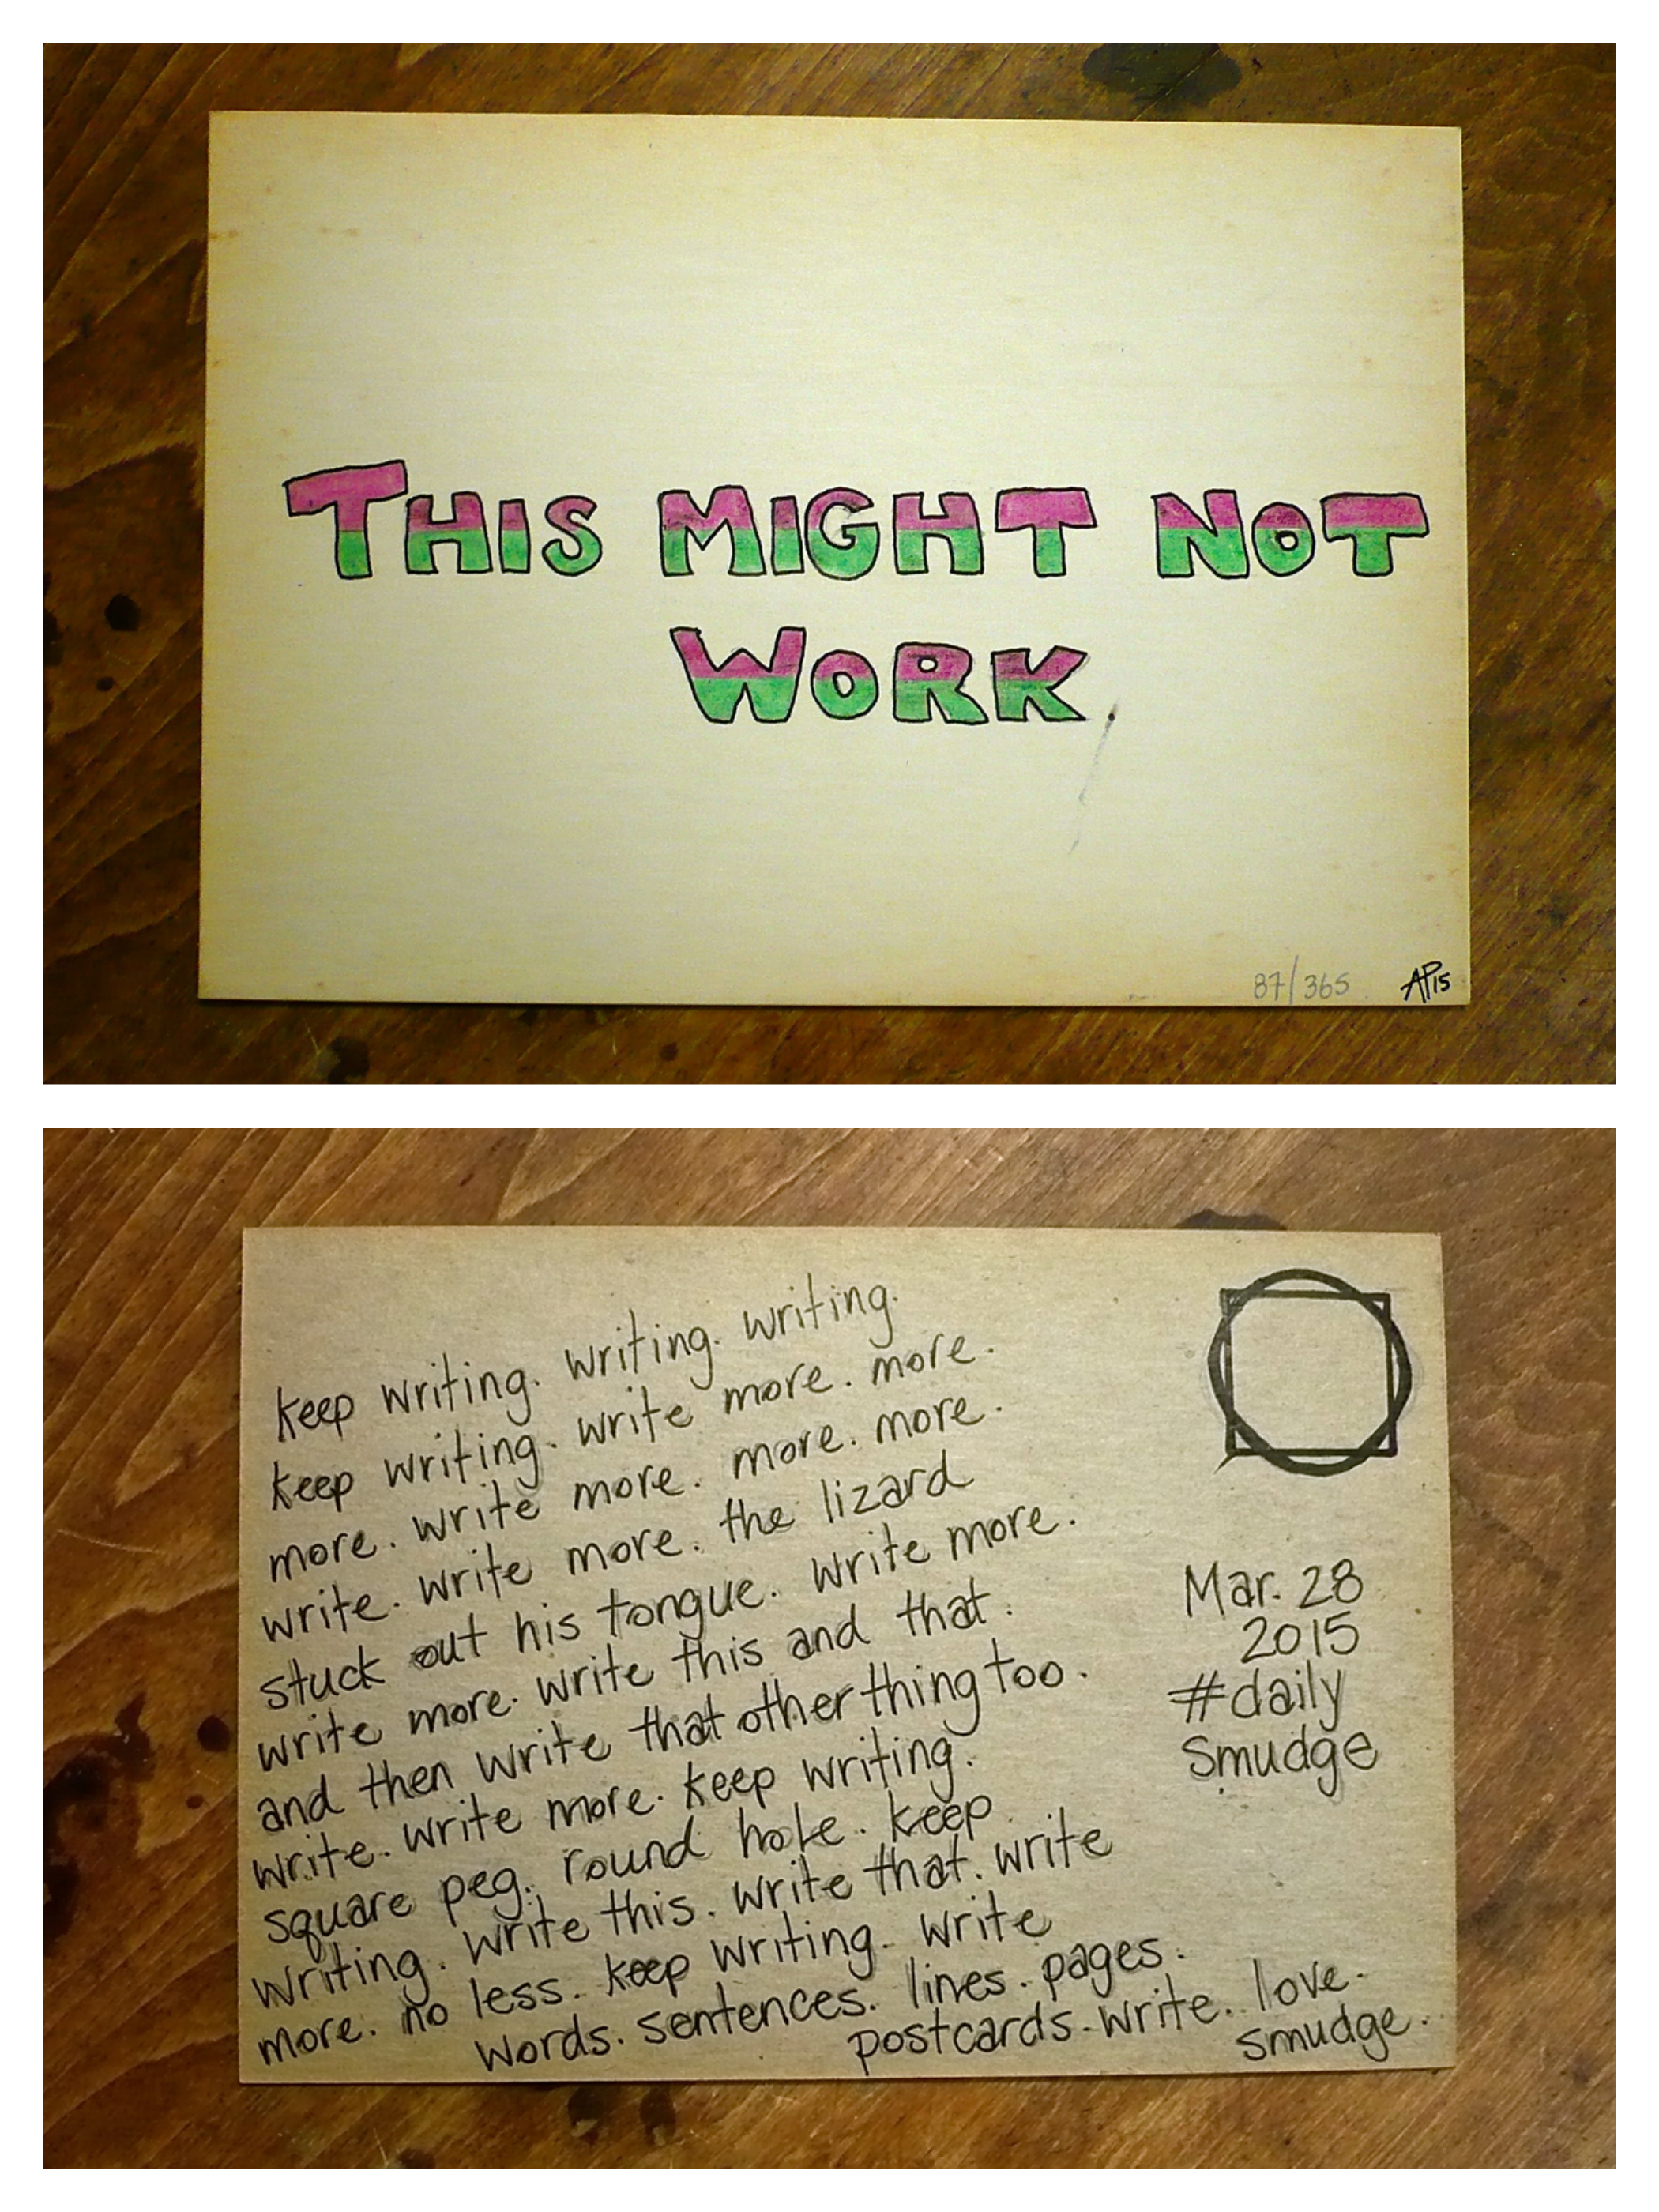 THIS MIGHT NOT
WORK
87/365 AP15
keep writing. writing. writing.
keep writing. write more. more.
more. write more. more. more.
write. write more. the lizard
stuck out his tongue. write more.
write more. write this and that.
and then write that other thing too.
write. write more. keep writing.
square peg. round hole. keep
writing. write this. write that. write
more. no less. keep writing. write
words. sentences. lines. pages.
postcards. write. love.
smudge.
Mar. 28
2015
#daily
smudge